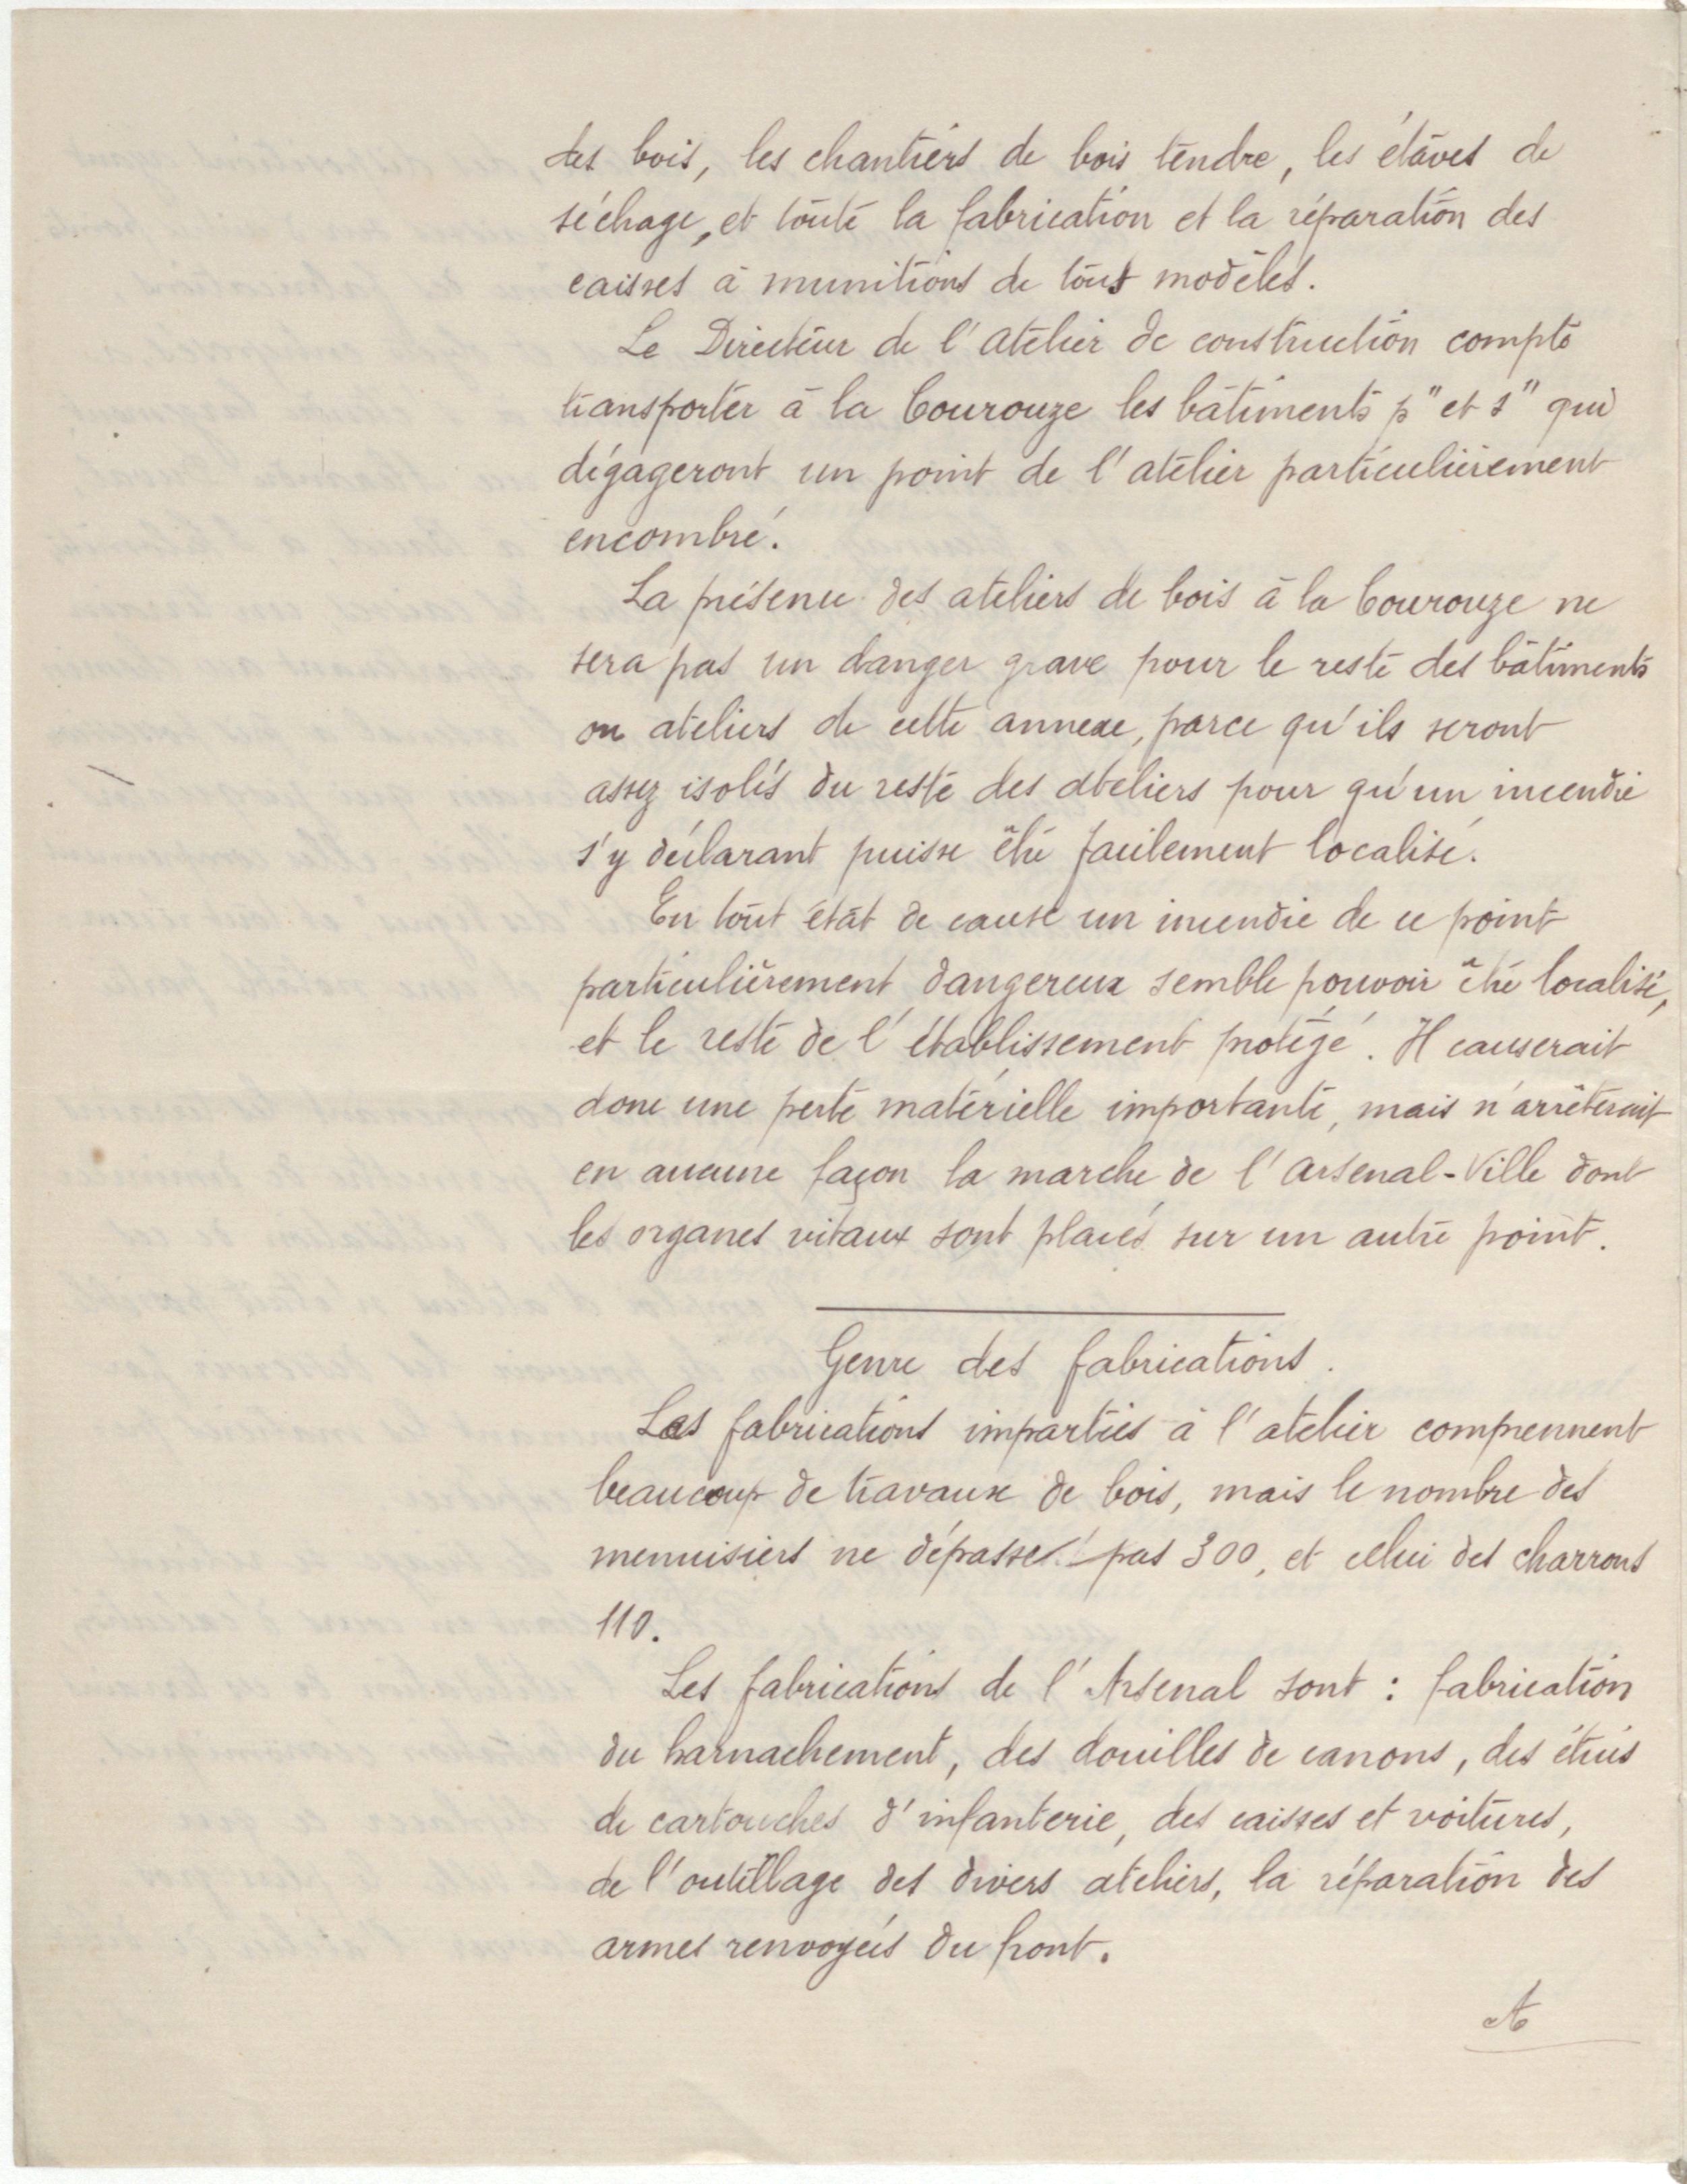 des bois, les chantiers de bois tendre, les étuves de
séchage, et toute la fabrication et la réparation des
caisses à munitions de tous modèles.
Le Directeur de l'atelier de construction compte
transporter à la Courouze les bâtiments p" et s" qui
dégageront un point de l'atelier particulièrement
encombré.
La présence des ateliers de bois à la Courouze ne
sera pas un danger grave pour le reste des bâtiments
ou ateliers de cette annexe, parce qu'ils seront
assez isolés du reste des ateliers pour qu'un incendie
s'y déclarant puisse être facilement localisé.
En tout état de cause un incendie de ce point
particulièrement dangereux semble pouvoir être localisé,
et le reste de l'établissement protégé. Il causerait
donc une perte matérielle importante, mais n'arrêterait
en aucune façon la marche de l'Arsenal-Ville dont
les organes vitaux sont placés sur un autre point.
Genre des fabrications.
Les fabrications imparties à l'atelier comprennent
beaucoup de travaux de bois, mais le nombre des
menuisiers ne dépasse pas 300, et celui des charrons
110.
Les fabrications de l'Arsenal sont : fabrication
du harnachement, des douilles de canons, des étuis
de cartouches d'infanterie, des caisses et voitures,
de l'outillage des divers ateliers, la réparation des
armes renvoyées du front.